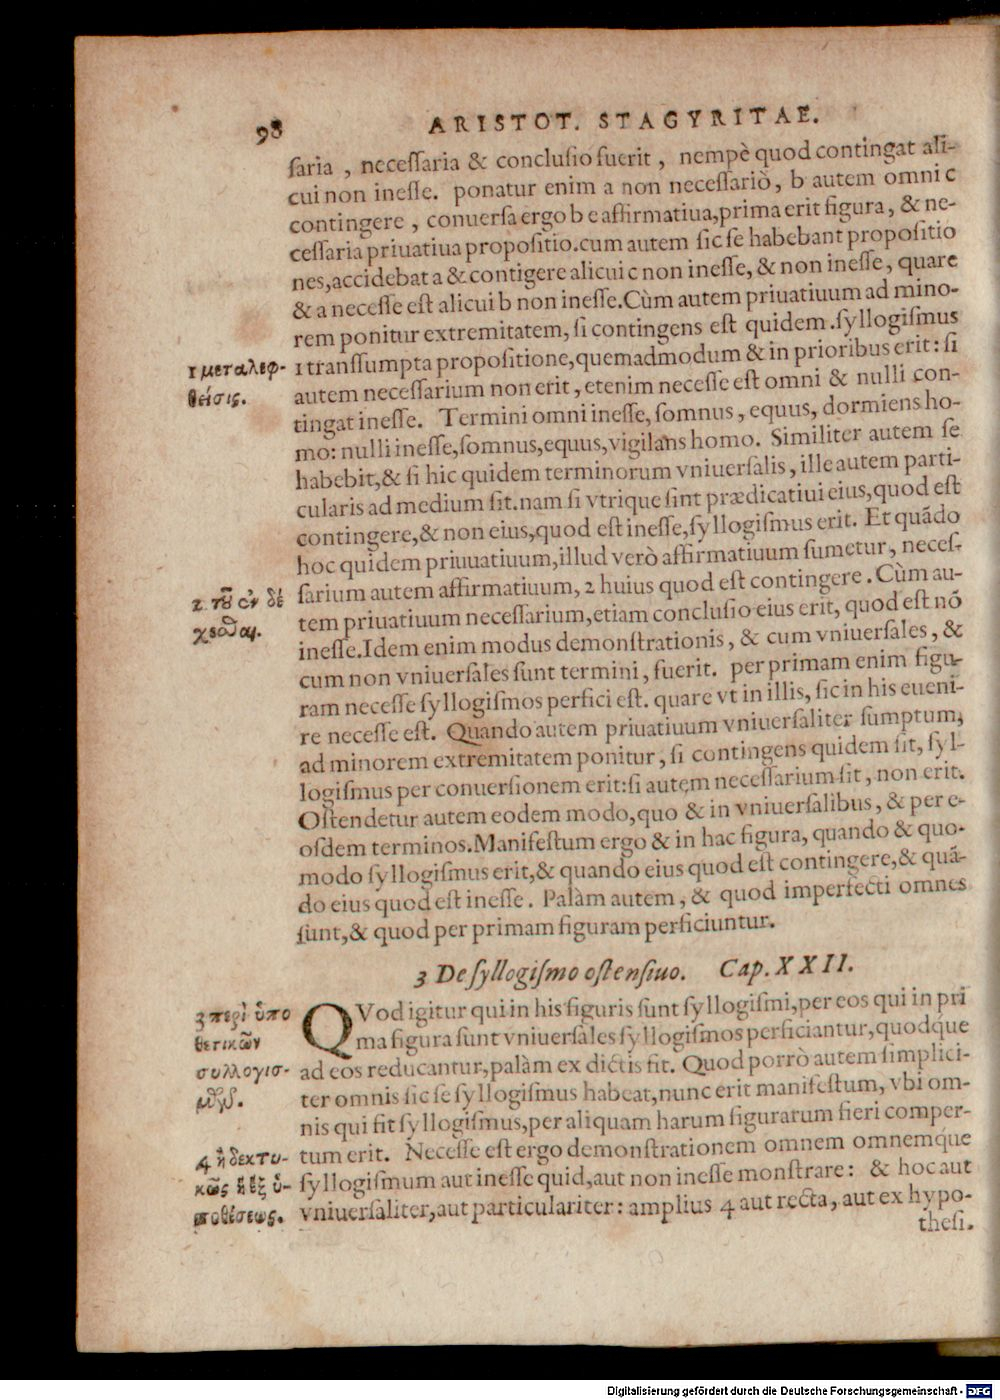 98 ARISTOT. STAGYRITAE.
ſaria , neceſſaria & concluſio fuerit , nempè quod contingat ali-
cui non ineſſe. ponatur enim a non neceſſariò, b autem omni c
contingere , conuerſa ergo b e affirmatiua,prima erit figura, & ne-
ceſſaria priuatiua propoſitio.cum autem ſic ſe habebant propoſitio
nes,accidebat a & contigere alicui c non ineſſe, & non ineſſe, quare
& a neceſſe eſt alicui b non ineſſe.Cùm autem priuatiuum ad mino-
rem ponitur extremitatem, ſi contingens eſt quidem.ſyllogiſmus
1 μεταλεφ-
θείσις.
1 tranſſumpta propoſitione,quemadmodum & in prioribus erit: ſi
autem neceſſarium non erit, etenim neceſſe eſt omni & nulli con-
tingat ineſſe. Termini omni ineſſe, ſomnus, equus, dormiens ho-
mo: nulli ineſſe,ſomnus,equus,vigilans homo. Similiter autem ſe
habebit,& ſi hic quidem terminorum vniuerſalis, ille autem parti-
cularis ad medium ſit.nam ſi vtrique ſint prædicatiui eius,quod eſt
contingere,& non eius,quod eſt ineſſe,ſyllogiſmus erit. Et quãdo
hoc quidem priuuatiuum,illud verò affirmatiuum ſumetur, neceſ-
2 τοῦ ἐν δέ
χεσθαι.
ſarium autem affirmatiuum, 2 huius quod eſt contingere. Cùm au-
tem priuatiuum neceſſarium,etiam concluſio eius erit, quod eſt nõ
ineſſe.Idem enim modus demonſtrationis, & cum vniuerſales, &
cum non vniuerſales ſunt termini, fuerit. per primam enim figu-
ram neceſſe ſyllogiſmos perfici eſt. quare vt in illis, ſic in his eueni-
re neceſſe eſt. Quando autem priuatiuum vniuerſaliter ſumptum,
ad minorem extremitatem ponitur, ſi contingens quidem ſit, ſyl-
logiſmus per conuerſionem erit:ſi autem neceſſarium ſit, non erit.
Oſtendetur autem eodem modo,quo & in vniuerſalibus, & per e-
oſdem terminos.Manifeſtum ergo & in hac figura, quando & quo-
modo ſyllogiſmus erit,& quando eius quod eſt contingere,& quã-
do eius quod eſt ineſſe. Palàm autem, & quod imperfecti omnes
ſunt,& quod per primam figuram perficiuntur.
3 De ſyllogiſmo oſtenſiuo. Cap. XXII.
3 περὶ ὑπο
θετικῶν
συλλογισ-
μῶν.
QVod igitur qui in his figuris ſunt ſyllogiſmi,per eos qui in pri
ma figura ſunt vniuerſales ſyllogiſmos perficiantur,quodque
ad eos reducantur,palàm ex dictis fit. Quod porrò autem ſimplici-
ter omnis ſic ſe ſyllogiſmus habeat,nunc erit manifeſtum, vbi om-
nis qui fit ſyllogiſmus,per aliquam harum figurarum fieri comper-
4 ἢ δεκτυ-
κῶς ἢ ἐξ ὑ-
ποθέσεως.
tum erit. Neceſſe eſt ergo demonſtrationem omnem omnemque
ſyllogiſmum aut ineſſe quid,aut non ineſſe monſtrare: & hoc aut
vniuerſaliter,aut particulariter: amplius 4 aut recta, aut ex hypo-
theſi.
Digitalisierung gefördert durch die Deutsche Forschungsgemeinschaft - DFG